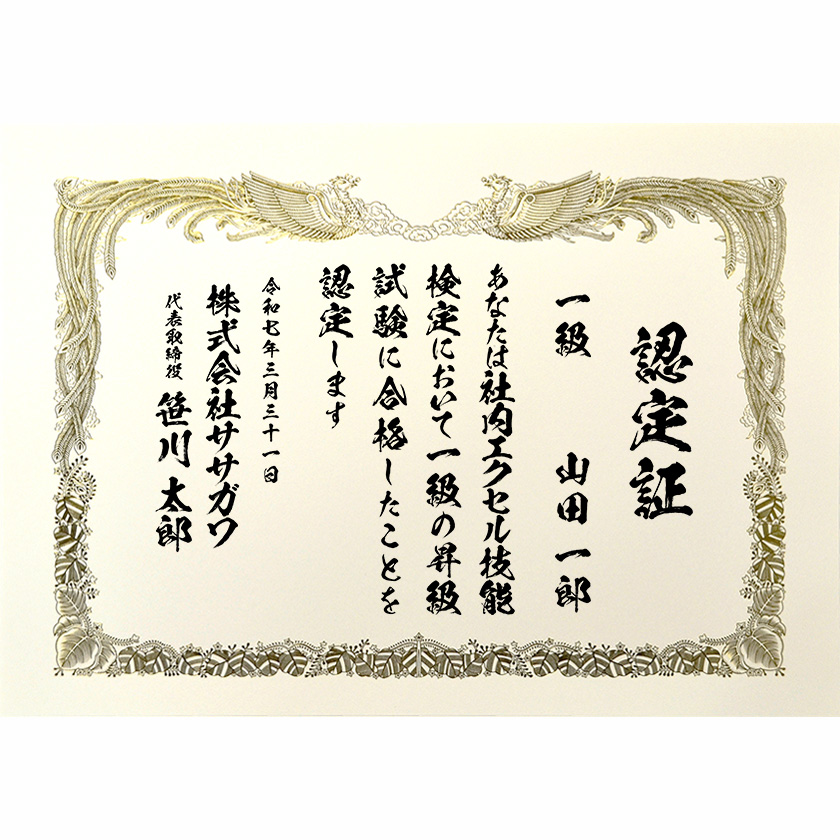 認定証
一級 山田一郎
あなたは社内エクセル技能
検定において一級の昇級
試験に合格したことを
認定します
令和七年三月三十一日
株式会社ササガワ
代表取締役 笹川太郎